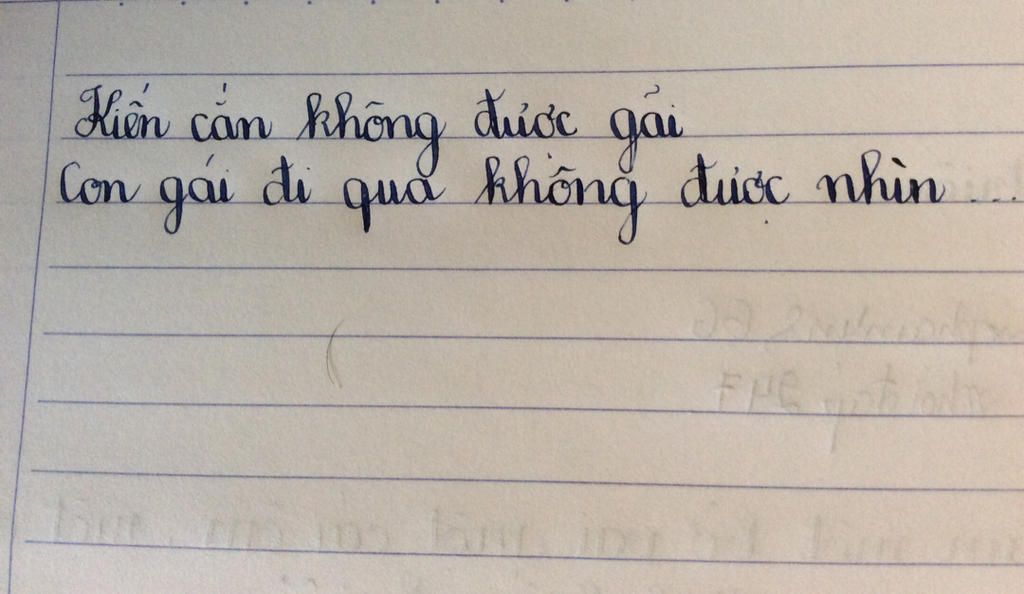 Kiến cắn không được gải
Con gái đi qua không được nhìn ...